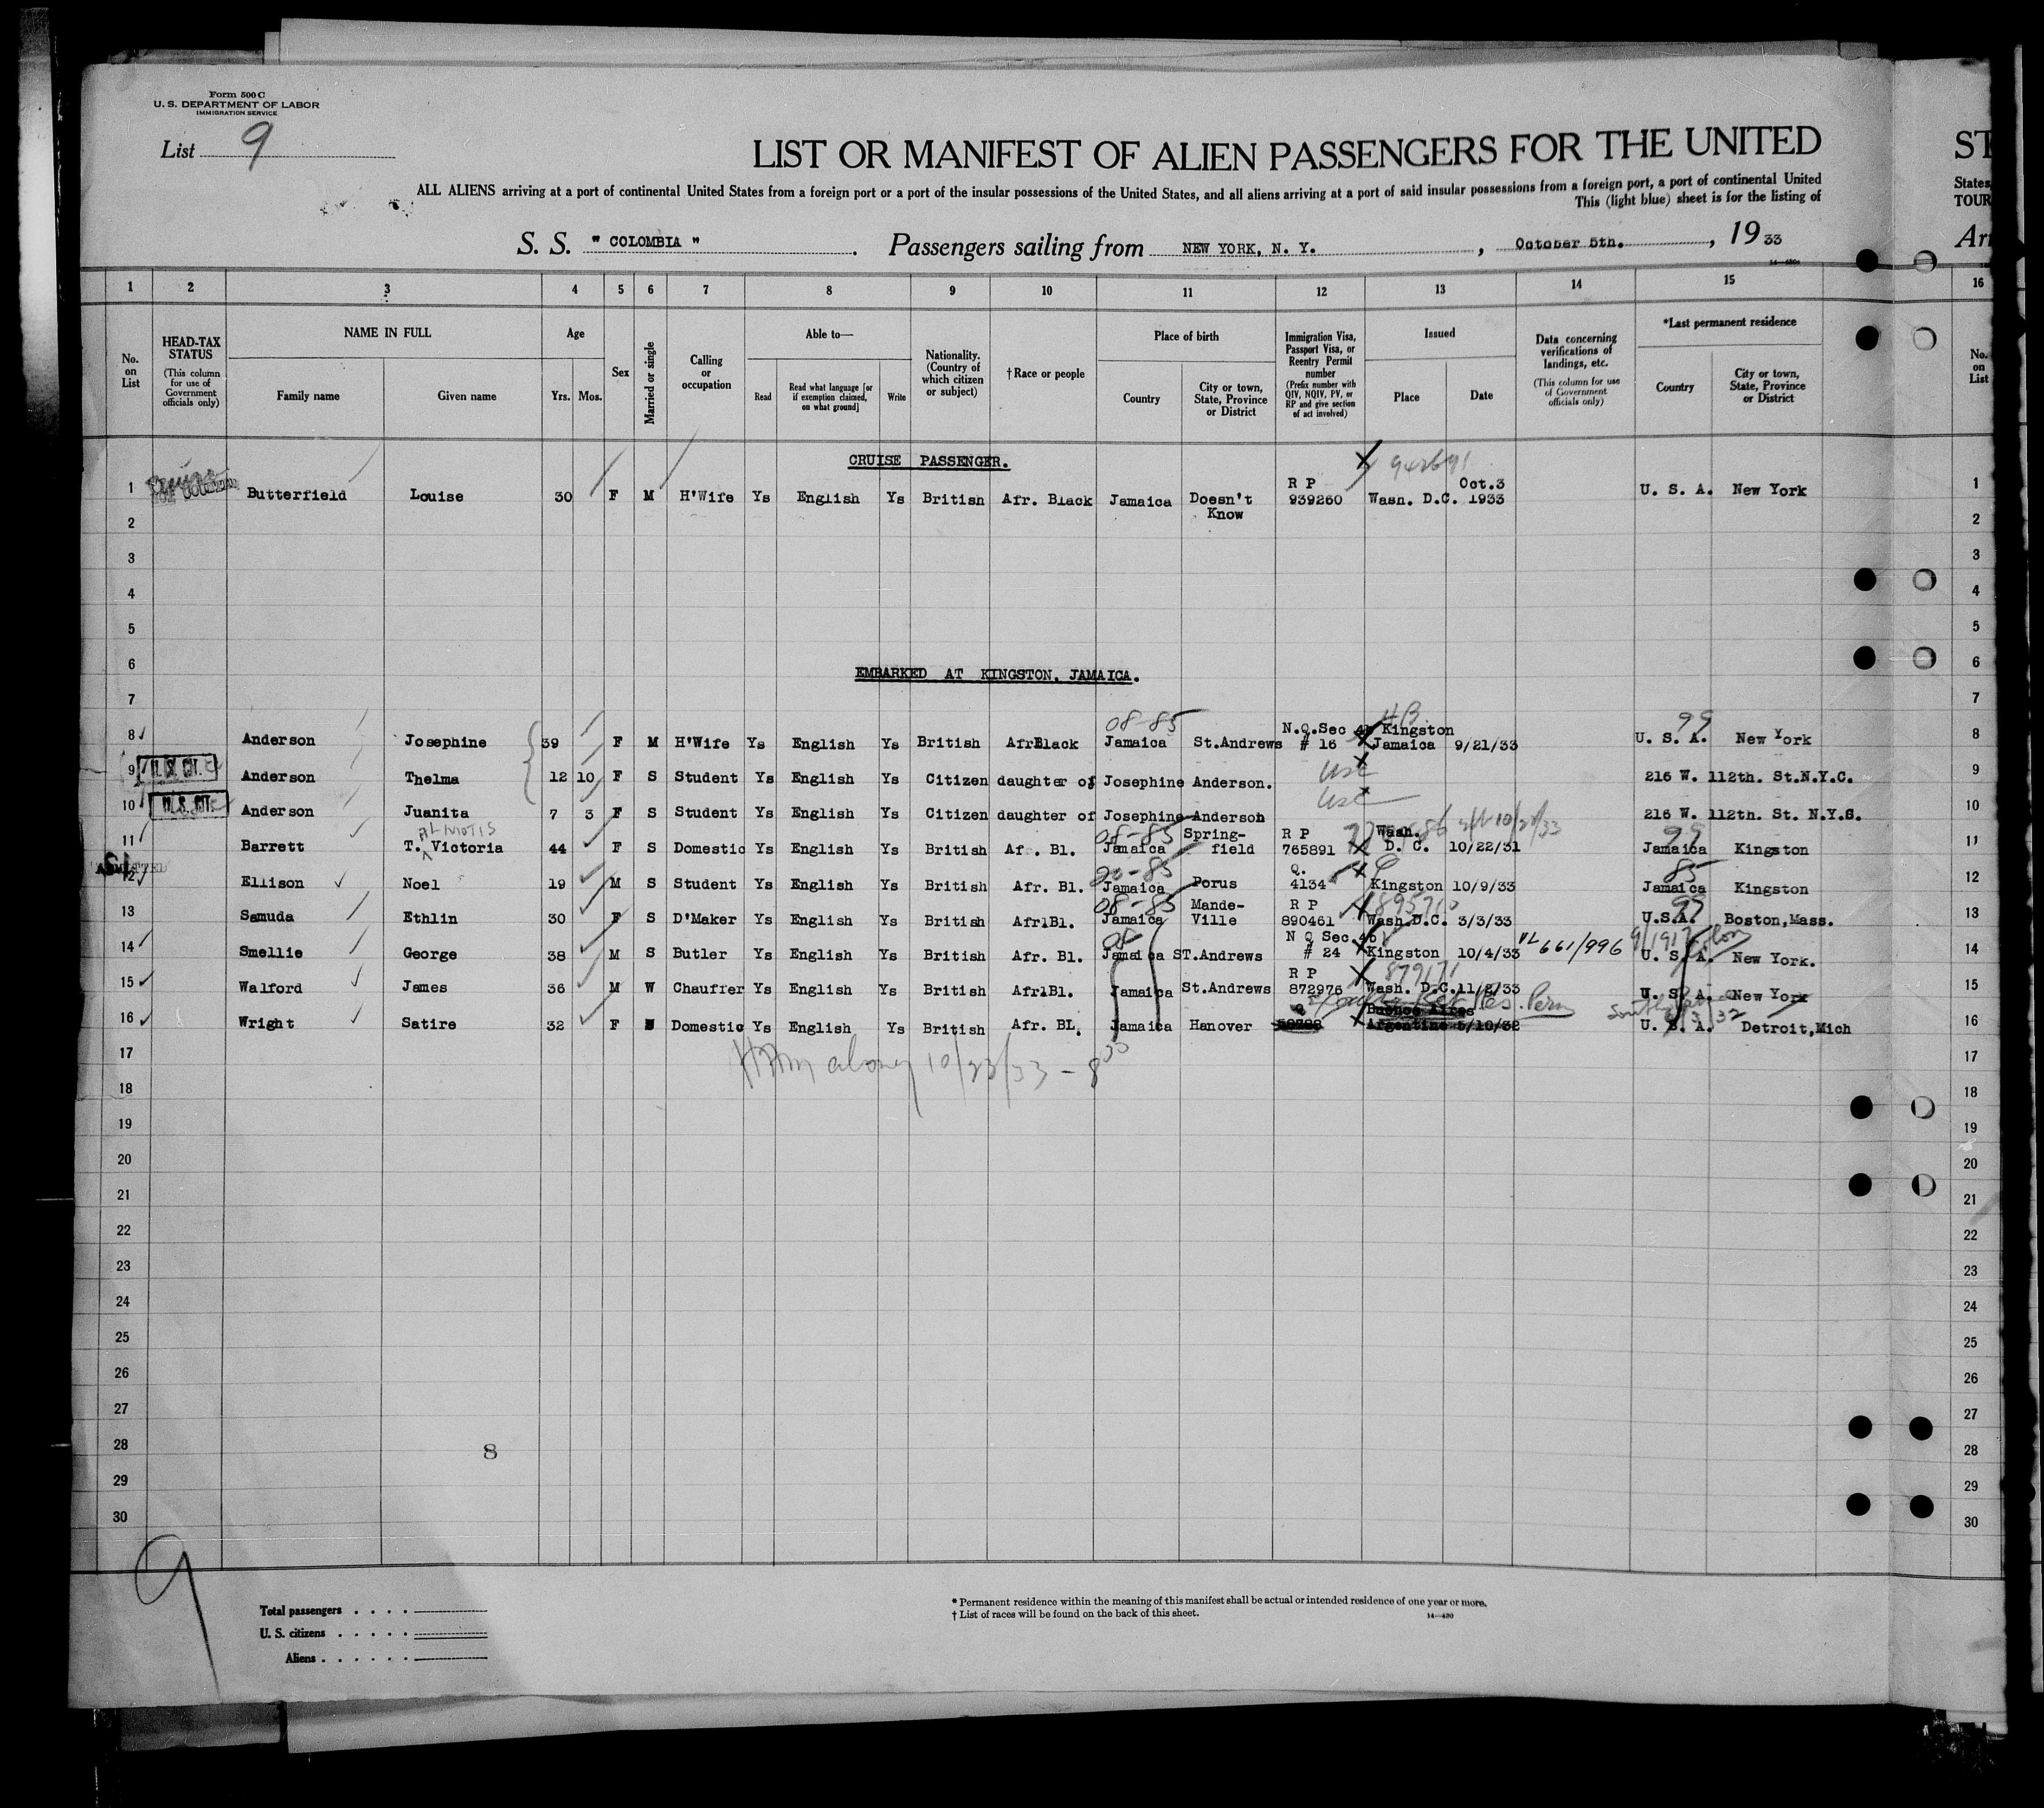 Form 500 C
U. S. DEPARTMENT OF LABOR
IMMIGRATION SERVICE
List 9
LIST OR MANIFEST OF ALIEN PASSENGERS FOR THE UNITED
ST
ALL ALIENS arriving at a port of continental United States from a foreign port or a port of the insular possessions of the United States, and all aliens arriving at a port of said insular possessions from a foreign port, a port of continental United
States,
This (light blue) sheet is for the listing of
TOUR
S. S. " COLOMBIA ". Passengers sailing from NEW YORK, N. Y. , October 5th. , 19 33
Arr
1 2 3 4 5 6 7 8 9 10 11 12 13 14 15 16
No. on List
HEAD-TAX STATUS (This column for use of Government officials only)
NAME IN FULL
Family name Given name
Age
Yrs. Mos.
Sex
Married or single
Calling or occupation
Able to—
Read Read what language [or if exemption claimed, on what ground] Write
Nationality. (Country of which citizen or subject)
†Race or people
Place of birth
Country City or town, State, Province or District
Immigration Visa, Passport Visa, or Reentry Permit number (Prefix number with QIV, NQIV, PV, or RP and give section of act involved)
Issued
Place Date
Data concerning verifications of landings, etc. (This column for use of Government officials only)
*Last permanent residence
Country City or town, State, Province or District
No. on List
CRUISE PASSENGER.
942691
R P Oct.3
1 Butterfield Louise 30 F M H'Wife Ys English Ys British Afr. Black Jamaica Doesn't 939260 Wash. D.C. 1933 U. S. A. New York 1
Know
2 2
3 3
4 4
5 5
6 6
EMBARKED AT KINGSTON, JAMAICA.
7 7
08-85 99
N.Q.Sec 4b Kingston
8 Anderson Josephine 39 F M H'Wife Ys English Ys British AfrBlack Jamaica St.Andrews # 16 Jamaica 9/21/33 U. S. A. New York 8
9 U. S. CIT. Anderson Thelma 12 10 F S Student Ys English Ys Citizen daughter of Josephine Anderson. USC 216 W. 112th. St.N.Y.C. 9
10 U. S. CIT. Anderson Juanita 7 3 F S Student Ys English Ys Citizen daughter of Josephine Anderson USC 216 W. 112th. St. N.Y.C. 10
ALMOTIS 08-85 Spring- R P Wash. 99
11 Barrett T. Victoria 44 F S Domestic Ys English Ys British Af . Bl. Jamaica field 765891 D. C. 10/22/31 Jamaica Kingston 11
20-85 Q. 85
12 Ellison Noel 19 M S Student Ys English Ys British Afr. Bl. Jamaica Porus 4134 Kingston 10/9/33 Jamaica Kingston 12
08-85 Mande- R P 99
13 Samuda Ethlin 30 F S D'Maker Ys English Ys British AfrlBl. Jamaica Ville 890461 Wash.D.C. 3/3/33 U.S.A. Boston,Mass. 13
08 N Q Sec 4b
14 Smellie George 38 M S Butler Ys English Ys British Afr. Bl. Jamaica ST.Andrews # 24 Kingston 10/4/33 VL 661/996 9/1917 U. S. A. New York. 14
R P 879171
15 Walford James 36 M W Chaufrer Ys English Ys British AfrlBl. Jamaica St.Andrews 872976 Wash. D.C.11/2/33 U. S. A. New York 15
Res. Perm
Buenos Aires
16 Wright Satire 32 F Domestic Ys English Ys British Afr. BL. Jamaica Hanover Argentine 5/10/32 U. S. A. Detroit,Mich 16
10/23/33 - 8
17 17
18 18
19 19
20 20
21 21
22 22
23 23
24 24
25 25
26 26
27 27
28 8 28
29 29
30 30
9
Total passengers . . . .
U. S. citizens . . . . .
Aliens . . . . . .
* Permanent residence within the meaning of this manifest shall be actual or intended residence of one year or more.
† List of races will be found on the back of this sheet.
14—430